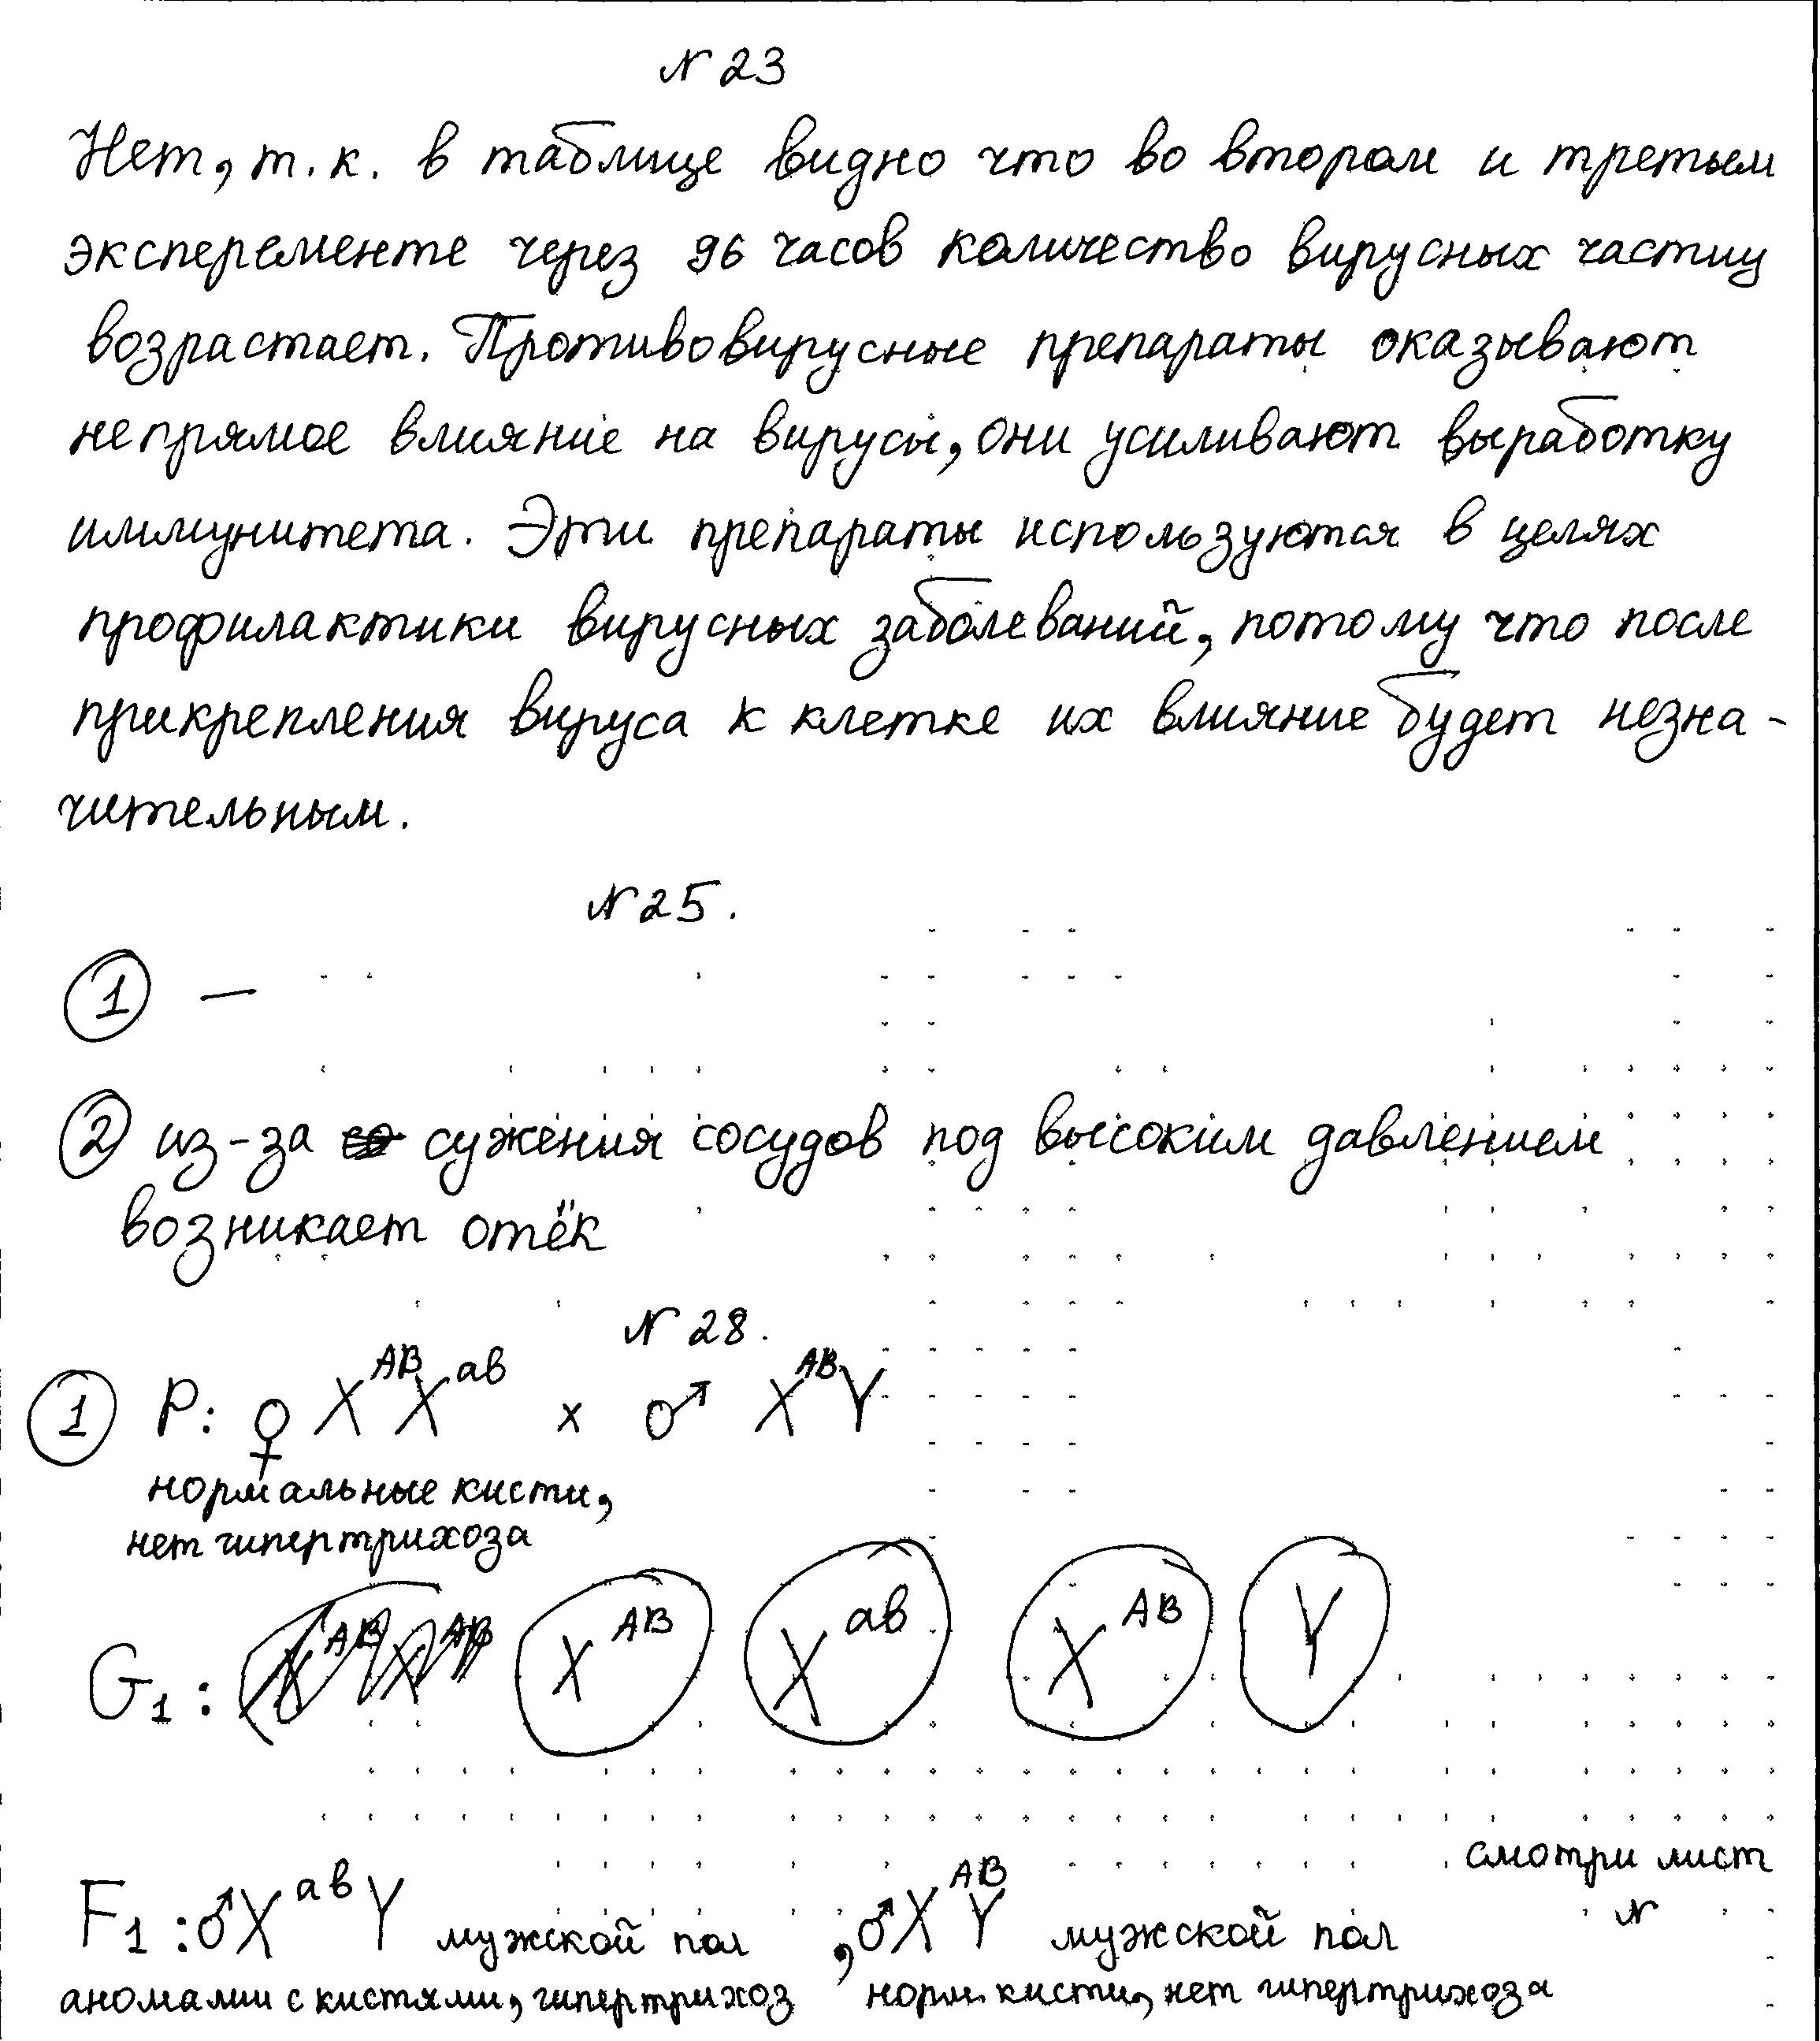 № 23
Нет, т.к. в таблице видно что во втором и третьем
эксперементе через 96 часов количество вирусных частиц
возрастает. Противовирусные препараты оказывают
непрямое влияние на вирусы, они усиливают выработку
иммунитета. Эти препараты используются в целях
профилактики вирусных заболеваний, потому что после
прикрепления вируса к клетке их влияние будет незна-
чительным.
№ 25.
① —
② из-за сужения сосудов под высоким давлением
возникает отёк
№ 28.
① P: ♀ X^AB X^ав x ♂ X^AB Y
нормальные кисти,
нет гипертрихоза
G1: X^AB X^ав X^AB Y
смотри лист
№
F1: ♂X^ав Y мужской пол , ♂X^AB Y мужской пол
аномалии с кистями, гипертрихоз норм. кисти, нет гипертрихоза